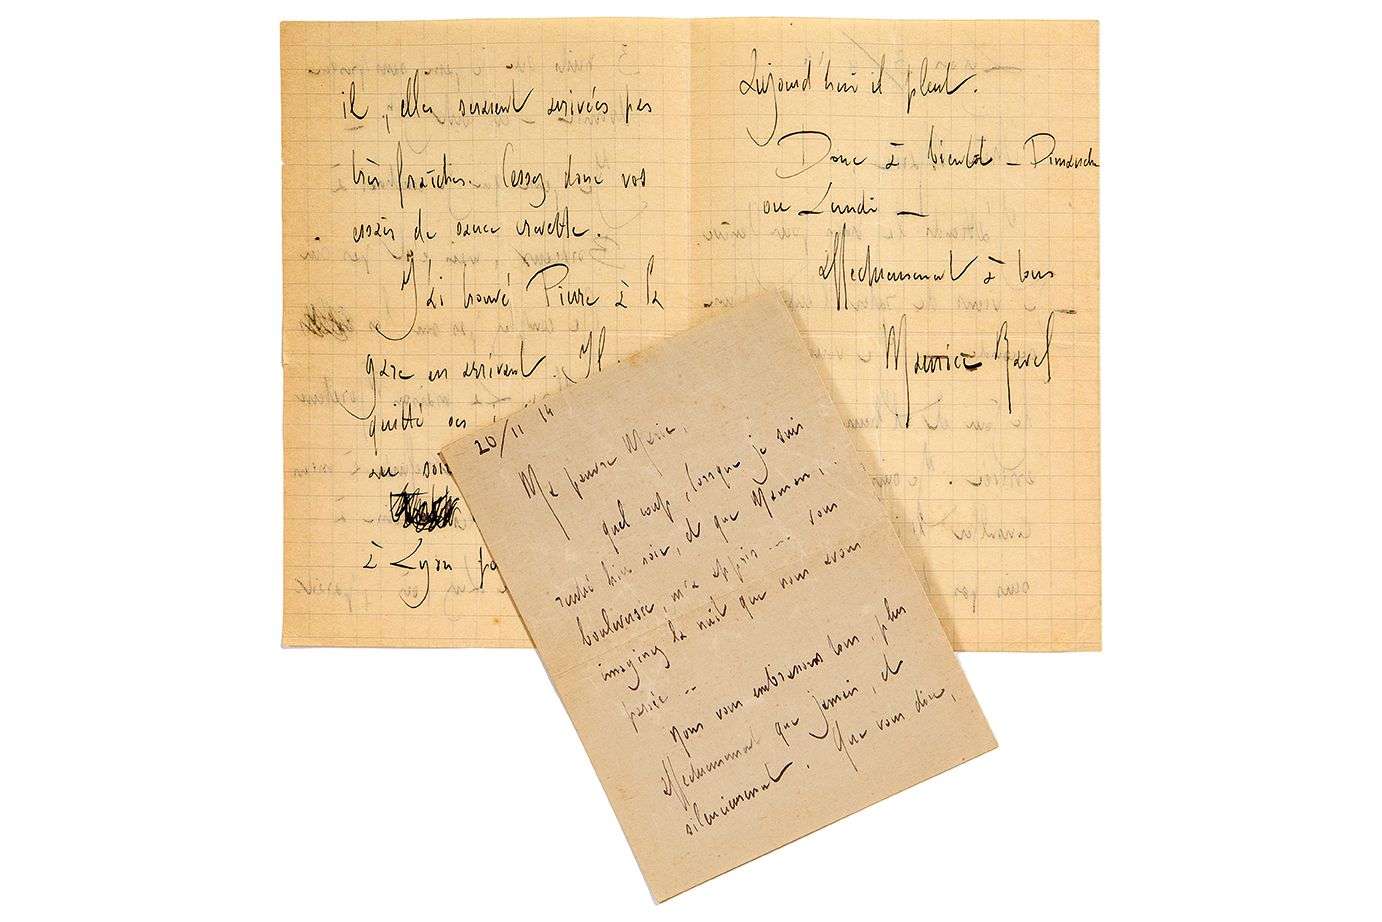 il, elles seraient arrivées pas
très fraîches. Cessez donc vos
essais de sauce crevette.
J'ai trouvé Pierre à la
gare en arrivant. Il
quitté
au soir
à Lyon
Aujourd'hui il pleut.
Donc à bientôt – Dimanche
ou Lundi –
affectueusement à tous
Maurice Ravel
20/11 14
Ma pauvre Marie,
quel coup, lorsque je suis
rentré hier soir, et que Maman,
bouleversée, m'a appris --- vous
imaginez la nuit que nous avons
passée --
Nous vous embrassons tous, plus
affectueusement que jamais, et
silencieusement. Que vous dire,